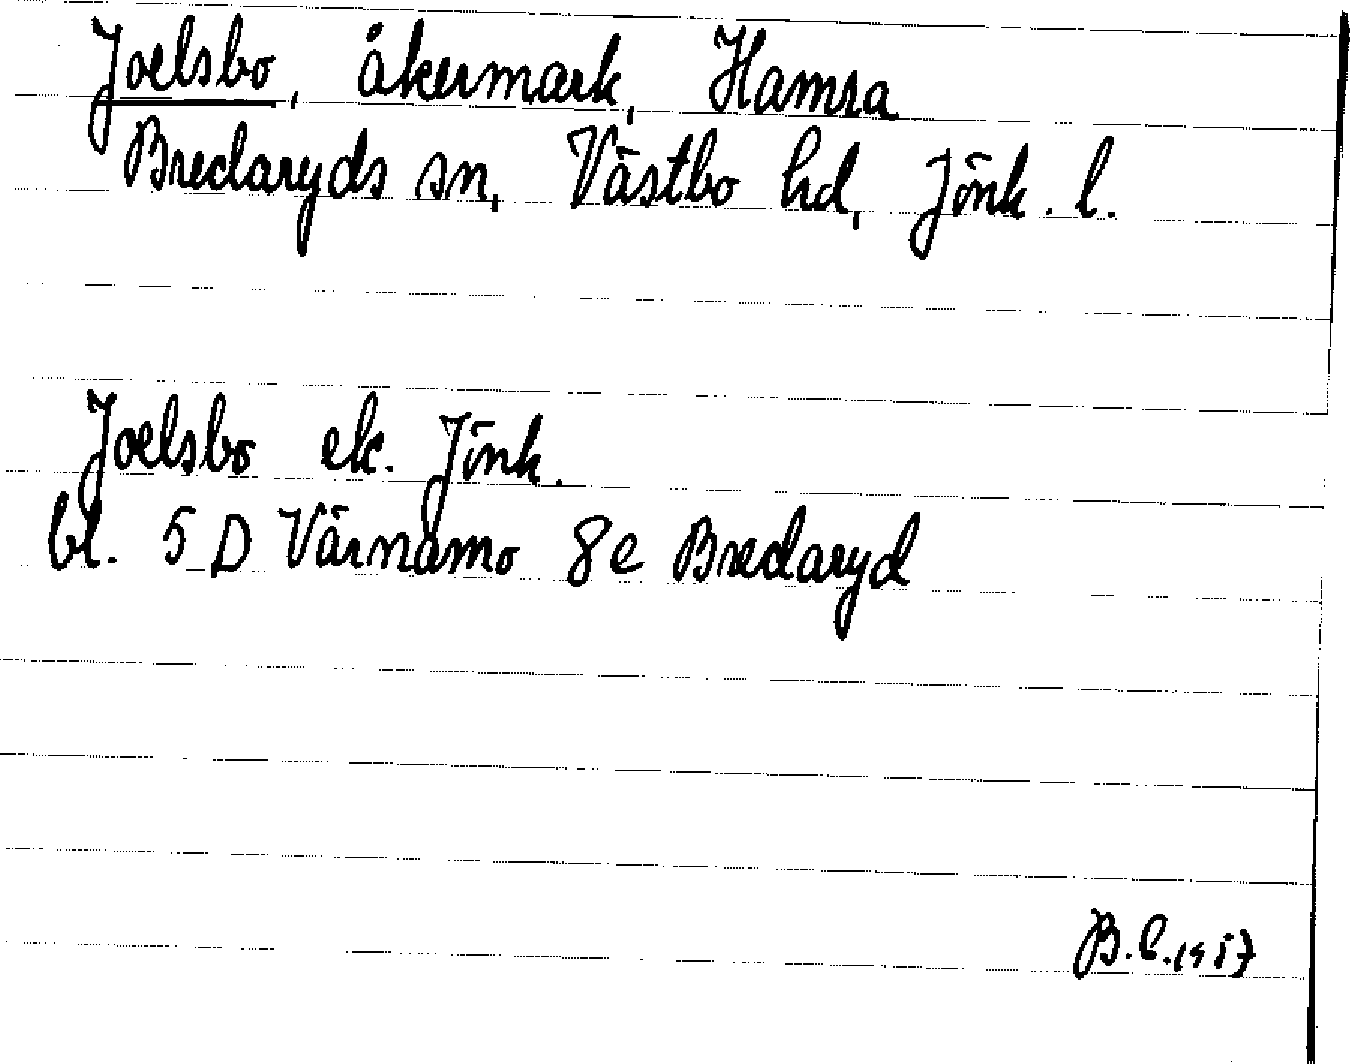 Joelsbo, åkermark, Hamra
Bredaryds sn, Västbo hd, Jönk. l.
Joelsbo ek. Jönk.
bl. 5 D Värnamo 8e Bredaryd
1957